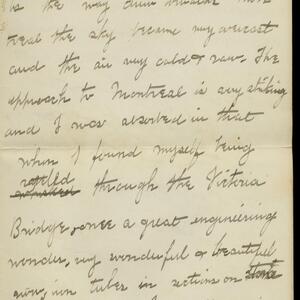 is the way
treal the sky became very overcast
and the air very cold & raw. The
approach to Montreal is very striking
and I was absorbed in that
when I found myself being
through the Victoria
Bridge, once a great engineering
wonder, very wonderful & beautiful
iron tubes in sections on